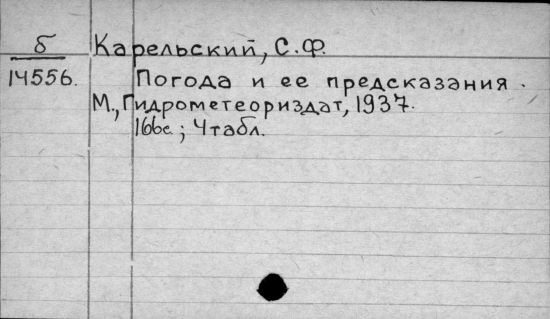 б Карельский, С.Ф.
14556. Погода и ее предсказания.
М., Гидрометеориздат, 1937.
166с.; 4табл.